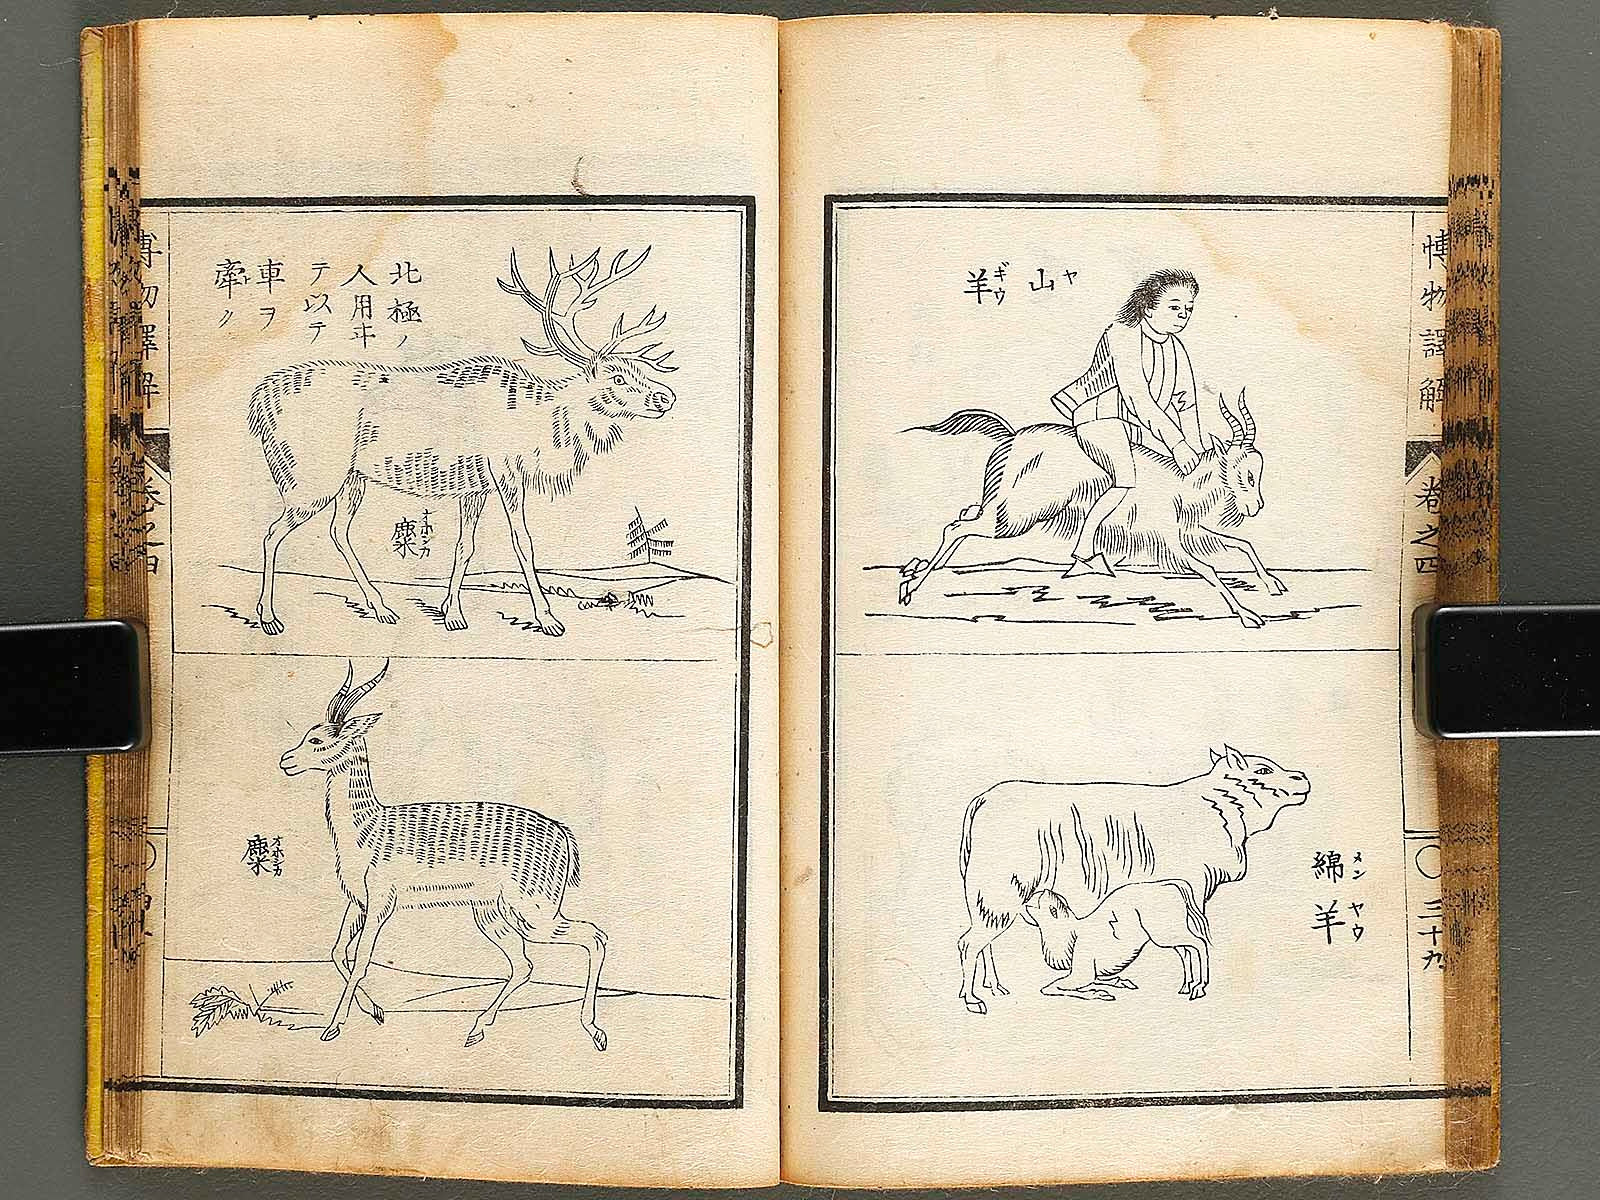 博物譯解
卷之四
三十九
山羊
ヤギウ
綿羊
メンヤウ
北極ノ
人用ヰ
テ以テ
車ヲ
牽ク
麋
オホシカ
麋
オホシカ
博物譯解
卷之四